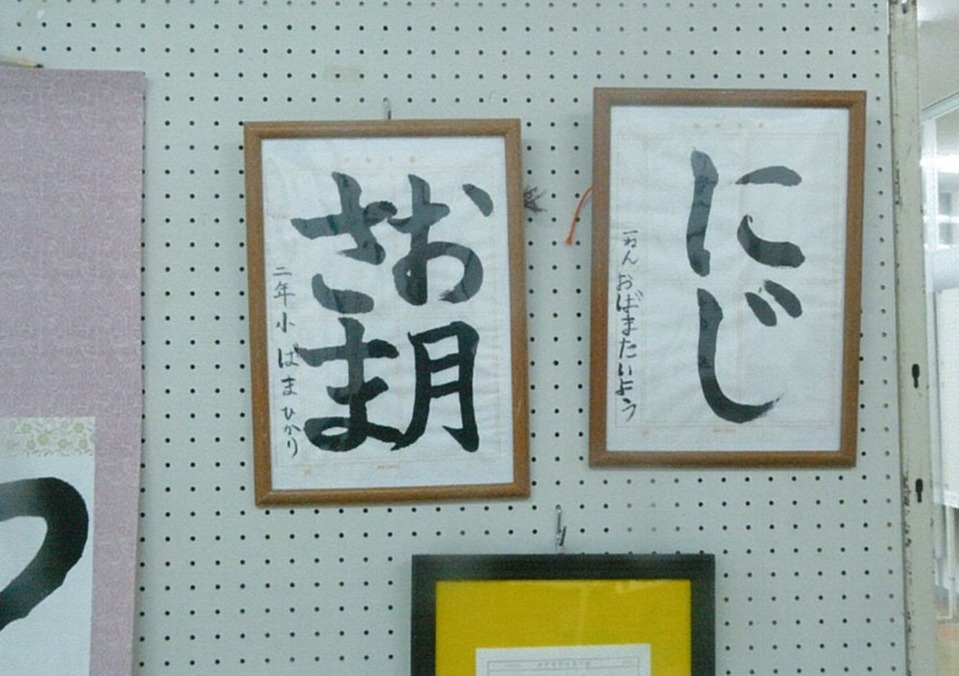 にじ
一ねん おばまたいよう
お月
さま
二年 小ばまひかり